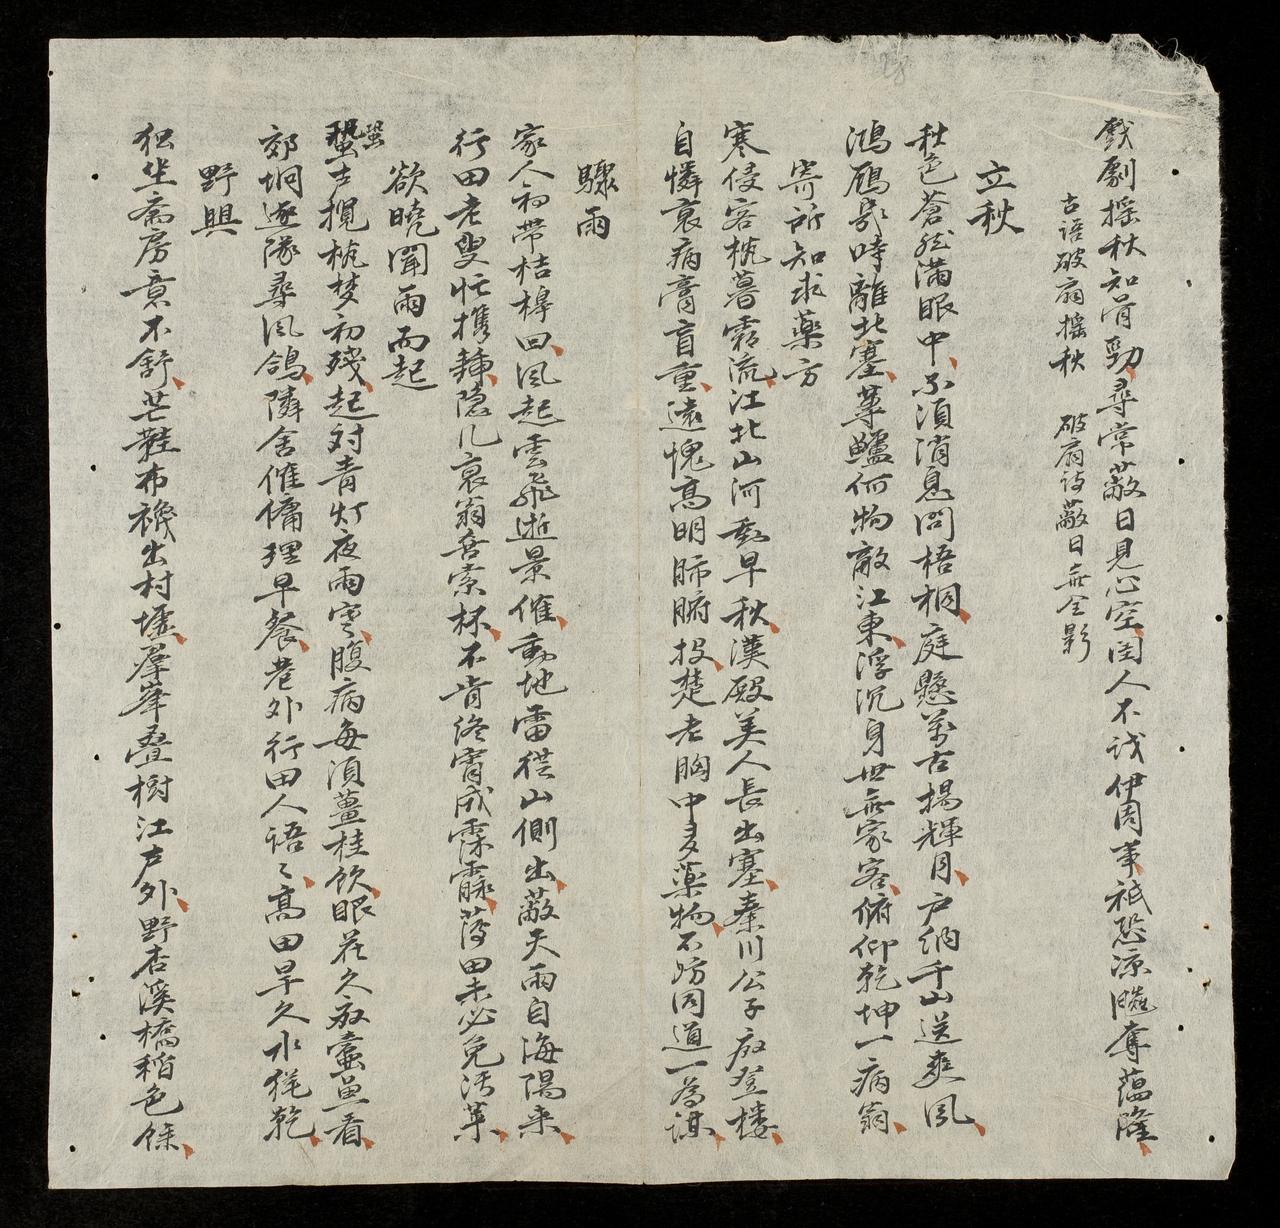 戲劇搖秋知有勁尋常蔽日見心空閨人不識伊周事祇恐凉颸奪蘊隆
古语破扇搖秋 破扇詩蔽日無全影
立秋
秋色蒼然滿眼中不須消息問梧桐庭懸萬古揚輝月户納千山送爽風
鴻鴈影時離北塞蓴鱸何物敵江東浮沉身世無家客俯仰乾坤一病翁
寄所知求藥方
寒侵客枕暮霜流江北山河動早秋漢殿美人長出塞秦川公子廢登樓
自憐衰病膏肓重遠愧高明肺腑投楚老胸中多藥物不妨同道一為謀
驟雨
家人初帶桔槔回風起雲飛逝景催動地雷從山側出蔽天雨自海陽來
行田老叟忙携鋤隱几衰翁喜索杯不肯終宵成霡霂薄田未必免汚萊
欲曉聞雨而起
蛩声攪枕梦初殘起对青灯夜雨寒腹病每須薑桂飲眼花久廢蠹魚看
郊坰逐隊尋風鴿隣舍催傭理早餐巷外行田人语〻高田旱久水猶乾
野興
独坐斋房意不舒芒鞋布襪出村墟羣峯叠樹江声外野杏溪橋稻色餘